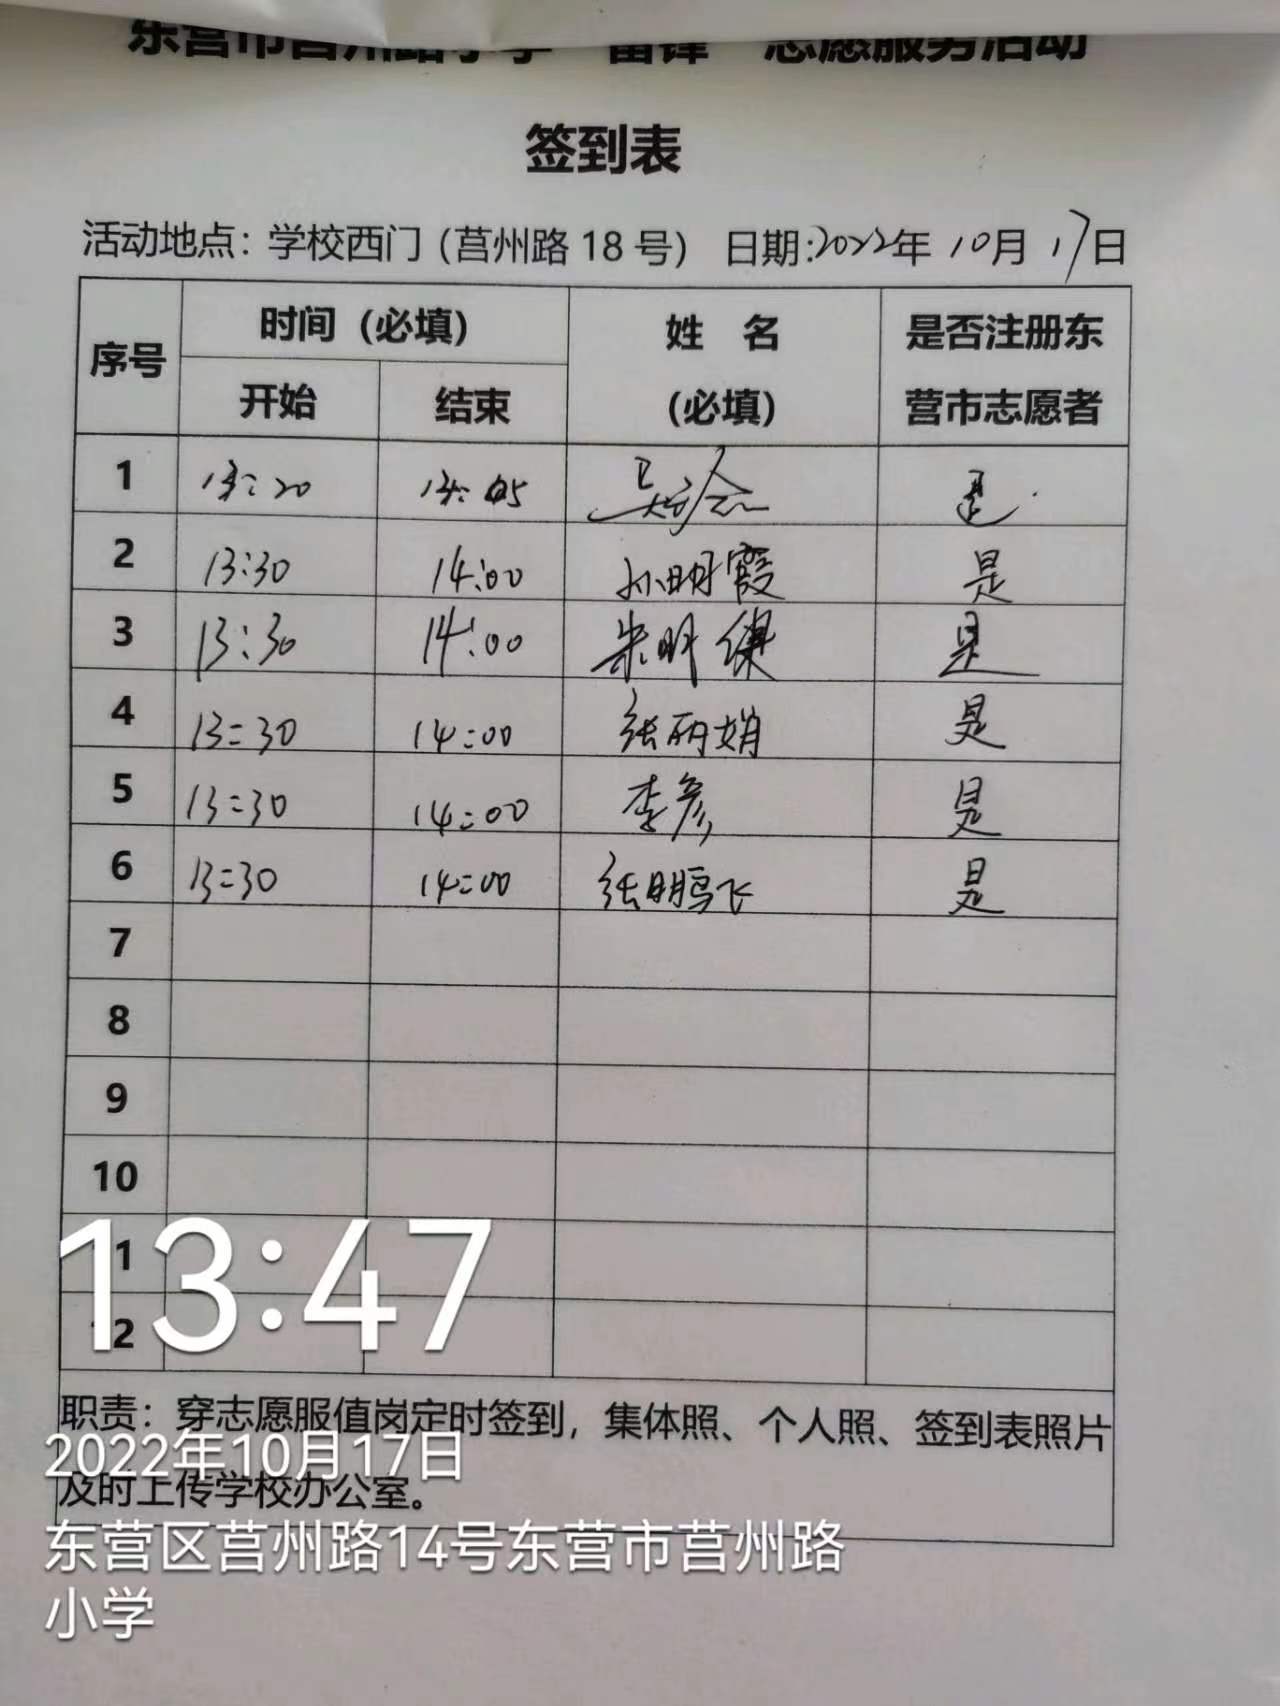 东营市莒州路小学“雷锋”志愿服务活动
签到表
活动地点：学校西门（莒州路 18 号） 日期:2022年 10月 17日
序号 时间（必填） 姓 名 是否注册东
开始 结束 （必填） 营市志愿者
1 13:20 14:05 是
2 13:30 14:00 孙明霞 是
3 13:30 14:00 朱明 是
4 13:30 14:00 张丽娟 是
5 13:30 14:00 李彦 是
6 13:30 14:00 张鹏飞 是
7
8
9
10
1
12
13:47
职责：穿志愿服值岗定时签到，集体照、个人照、签到表照片
及时上传学校办公室。
2022年10月17日
东营区莒州路14号东营市莒州路
小学